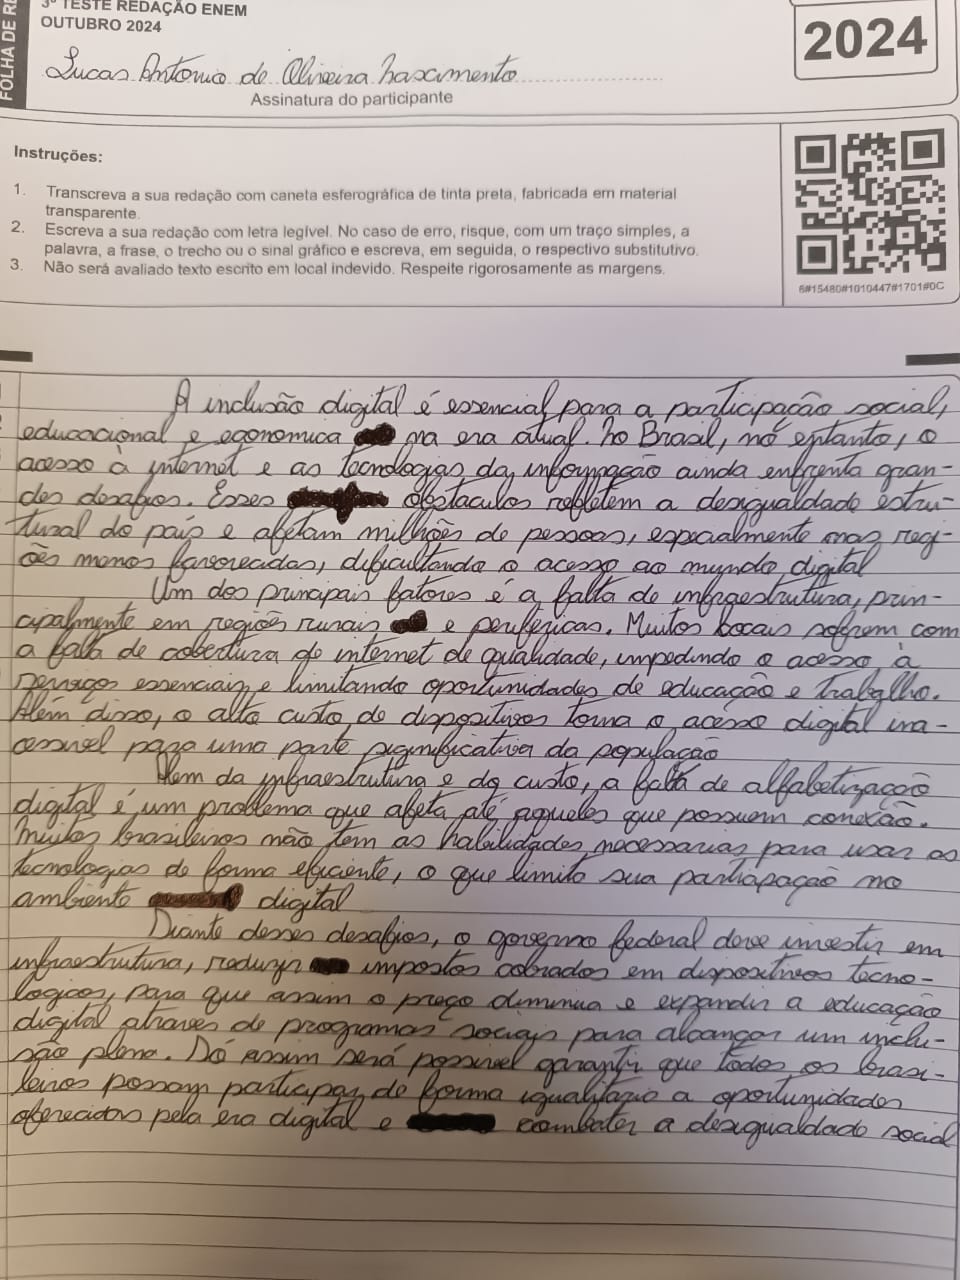 FOLHA DE RE
3º TESTE REDAÇÃO ENEM
OUTUBRO 2024
2024
Lucas Antonio de Oliveira Nascimento
Assinatura do participante
Instruções:
1. Transcreva a sua redação com caneta esferográfica de tinta preta, fabricada em material
transparente.
2. Escreva a sua redação com letra legível. No caso de erro, risque, com um traço simples, a
palavra, a frase, o trecho ou o sinal gráfico e escreva, em seguida, o respectivo substitutivo.
3. Não será avaliado texto escrito em local indevido. Respeite rigorosamente as margens.
6#15480#1010447#1701#0C
A inclusão digital é essencial para a participação social,
educacional e economica na era atual. No Brasil, no entanto, o
acesso à internet e as tecnologias da informação ainda enfrenta gran-
des desafios. Esses obstaculos refletem a desigualdade estru-
tural do país e afetam milhões de pessoas, especialmente nas regi-
ões menos favorecidas, dificultando o acesso ao mundo digital
Um dos principais fatores é a falta de infraestrutura, prin-
cipalmente em regiões rurais e perifericas. Muitos locais sofrem com
a falta de cobertura de internet de qualidade, impedindo o acesso à
serviços essenciais e limitando oportunidades de educação e trabalho.
Além disso, o alto custo de dispositivos torna o acesso digital ina-
cessivel para uma parte significativa da população
Alem da infraestrutura e do custo, a falta de alfabetização
digital é um problema que afeta até aqueles que possuem conexão.
Muitos brasileiros não tem as habilidades necessarias para usar as
tecnologias de forma eficiente, o que limita sua participação no
ambiente digital
Diante desses desafios, o governo federal deve investir em
infraestrutura, reduzir impostos cobrados em dispositivos tecno-
logicos, para que assim o preço diminua e expandir a educação
digital atraves de programas sociais para alcançar um inclu-
são plena. Só assim será possivel garantir que todos os brasi-
leiros possam participar de forma igualitaria a oportunidades
oferecidas pela era digital e combater a desigualdade social